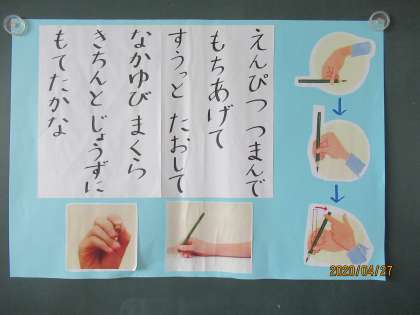 えんぴつ つまんで
もちあげて
すうっと たおして
なかゆび まくら
きちんと じょうずに
もてたかな
2020/04/27